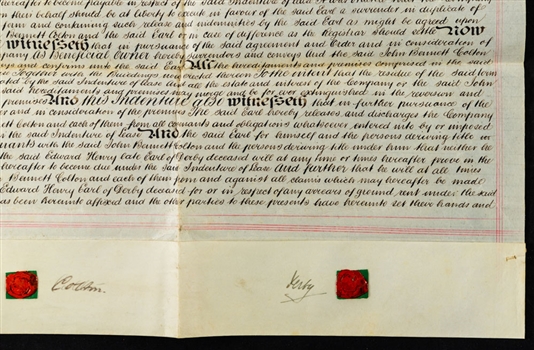 thereafter to become payable in respect of the said
in their behalf should be at liberty to execute in favour of the said Earl a surrender in duplicate of
and containing such release and indemnities by the said Earl as might be agreed upon
Bannett Cotton and the said Earl or in case of difference as the Registrar should settle Now
witnesseth that in pursuance of the said agreement and Order and in consideration of
Company as Beneficial Owner hereby surrenders and conveys And the said John Bannett Cotton
and confirms unto the said Earl All the hereditaments and premises comprised in the said
Together with the Buildings erected thereon To the intent that the residue of the said term
created by the said Indenture of Lease and all the estate and interest of the Company or the said John
said hereditaments and premises may merge and be for ever extinguished in the reversion and
premises And this Indenture also witnesseth that in further pursuance of the
and in consideration of the premises The said Earl hereby releases and discharges the Company
Cotton and each of them from all covenants and obligations whatsoever entered into by or imposed
in the said Indenture of Lease And the said Earl for himself and the persons deriving title
with the said John Bannett Cotton and the persons deriving title under him that neither he
the said Edward Henry late Earl of Derby deceased will at any time or times hereafter prove in the
hereafter to become due under the said Indenture of Lease And further that he will at all times
Bannett Cotton and each of them from and against all claims which may hereafter be made
Edward Henry Earl of Derby deceased for or in respect of any arrears of ground rent under the said
has been hereunto affixed and the other parties to these presents have hereunto set their hands and
Cotton
Derby